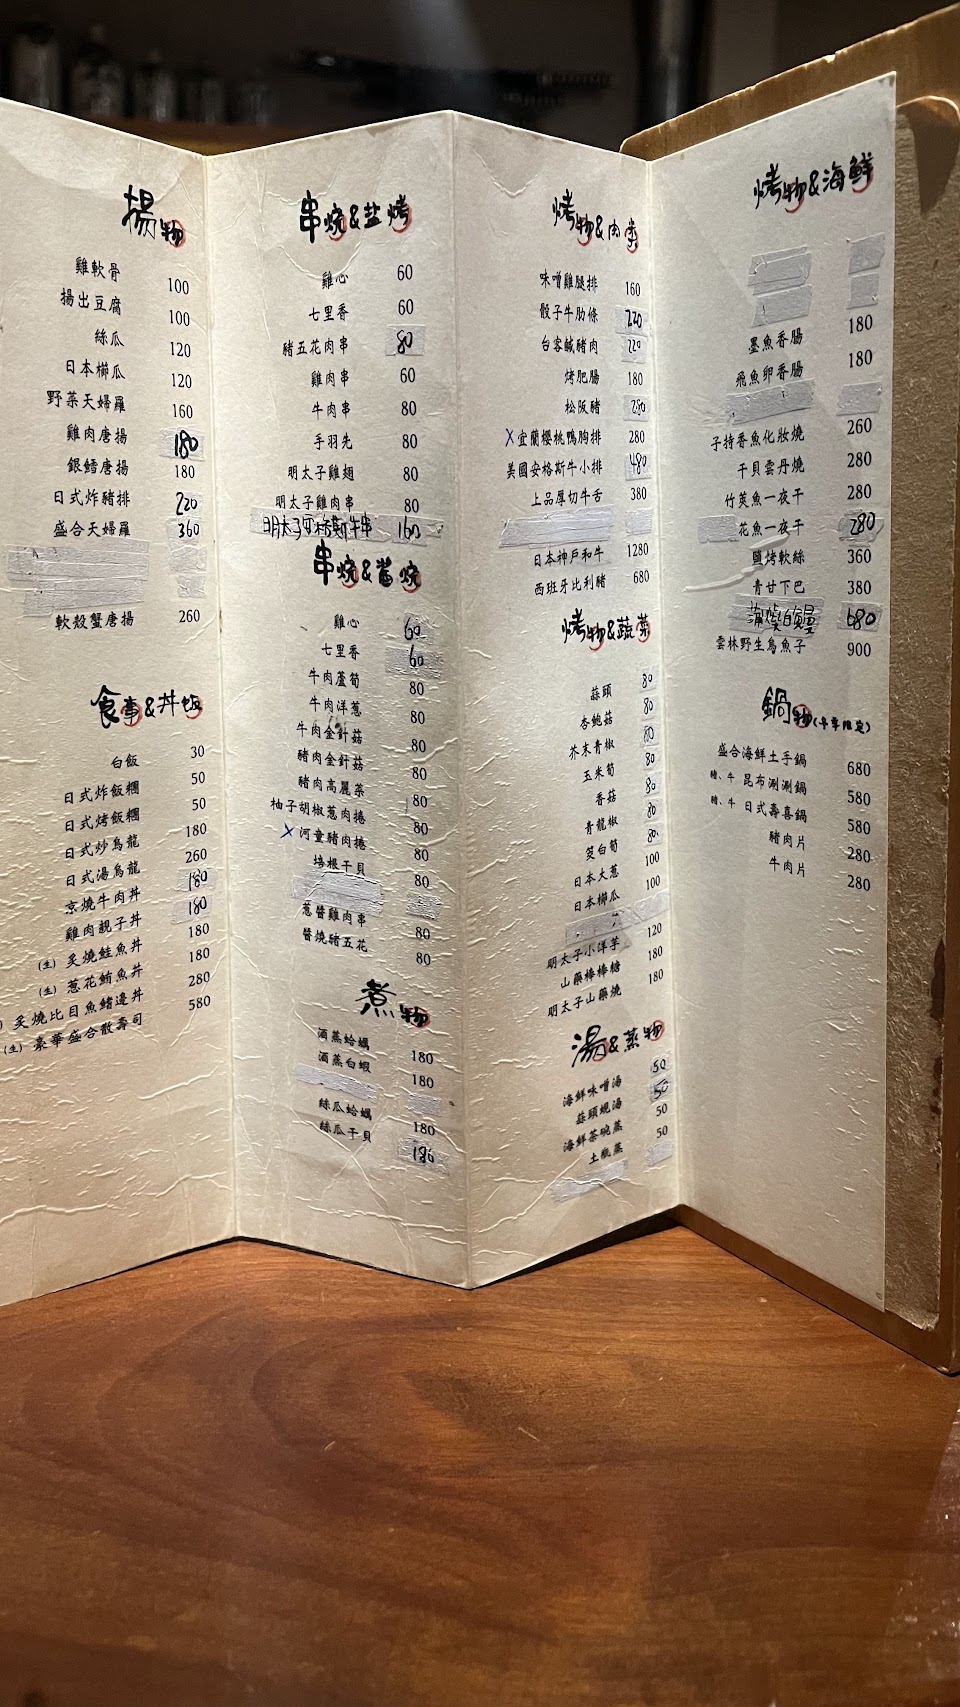 揚物
雞軟骨 100
揚出豆腐 100
絲瓜 120
日本櫛瓜 120
野菜天婦羅 160
雞肉唐揚 180
銀鱈唐揚 180
日式炸豬排 220
盛合天婦羅 360
軟殼蟹唐揚 260
食事&丼飯
白飯 30
日式炸飯糰 50
日式烤飯糰 50
日式炒烏龍 180
日式湯烏龍 260
京燒牛肉丼 180
雞肉親子丼 180
(生) 炙燒鮭魚丼 180
(生) 蔥花鮪魚丼 180
炙燒比目魚鰭邊丼 280
(生) 豪華盛合散壽司 580
串燒&盐烤
雞心 60
七里香 60
豬五花肉串 80
雞肉串 60
牛肉串 80
手羽先 80
明太子雞翅 80
明太子雞肉串 80
明太子安格斯牛串 160
串燒&醬燒
雞心 60
七里香 60
牛肉蘆筍 80
牛肉洋蔥 80
牛肉金針菇 80
豬肉金針菇 80
豬肉高麗菜 80
柚子胡椒蔥肉捲 80
X 河童豬肉捲 80
培根干貝 80
蔥醬雞肉串 80
醬燒豬五花 80
煮物
酒蒸蛤蠣 180
酒蒸白蝦 180
絲瓜蛤蠣 180
絲瓜干貝 180
烤物&肉类
味噌雞腿排 160
骰子牛肋條 220
台客鹹豬肉 220
烤肥腸 180
松阪豬 280
X 宜蘭櫻桃鴨胸排 280
美國安格斯牛小排 480
上品厚切牛舌 380
日本神戶和牛 1280
西班牙比利豬 680
烤物&蔬菜
蒜頭 80
杏鮑菇 80
芥末青椒 80
玉米筍 80
香菇 80
青龍椒 80
筊白筍 80
日本大蔥 100
日本櫛瓜 100
明太子小洋芋 120
山藥棒棒糖 180
明太子山藥燒 180
湯&蒸物
海鮮味噌湯 50
蒜頭蜆湯 50
海鮮茶碗蒸 50
土瓶蒸 50
烤物&海鮮
墨魚香腸 180
飛魚卵香腸 180
子持香魚化妝燒 260
干貝雲丹燒 280
竹筴魚一夜干 280
花魚一夜干 280
鹽烤軟絲 360
青甘下巴 380
蒲燒白鰻 680
雲林野生烏魚子 900
鍋物(冬季限定)
盛合海鮮土手鍋 680
豬、牛 昆布涮涮鍋 580
豬、牛 日式壽喜鍋 580
豬肉片 280
牛肉片 280